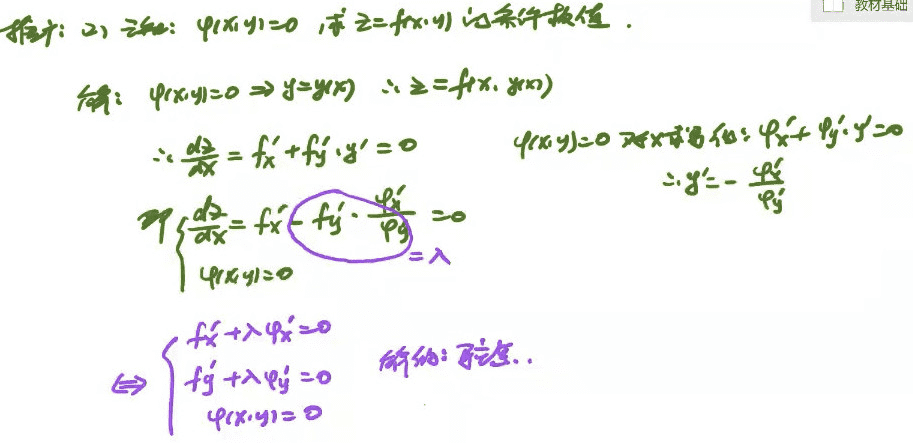 教材基础
推广: 2) 已知: φ(x,y)=0, 求 z=f(x,y) 的条件极值.
解: φ(x,y)=0 ⇒ y=y(x) ∴ z=f(x, y(x))
∴ dz/dx = fx' + fy'·y' = 0
φ(x,y)=0 对x求导得: φx' + φy'·y' = 0
∴ y' = - φx'/φy'
即 { dz/dx = fx' - fy'·φx'/φy' = 0
= λ
φ(x,y)=0
⇔ { fx' + λφx' = 0
fy' + λφy' = 0
φ(x,y)=0
解的: 驻点..